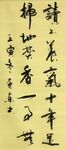 讀書養氣十年足
掃地焚香一事無
壬寅冬